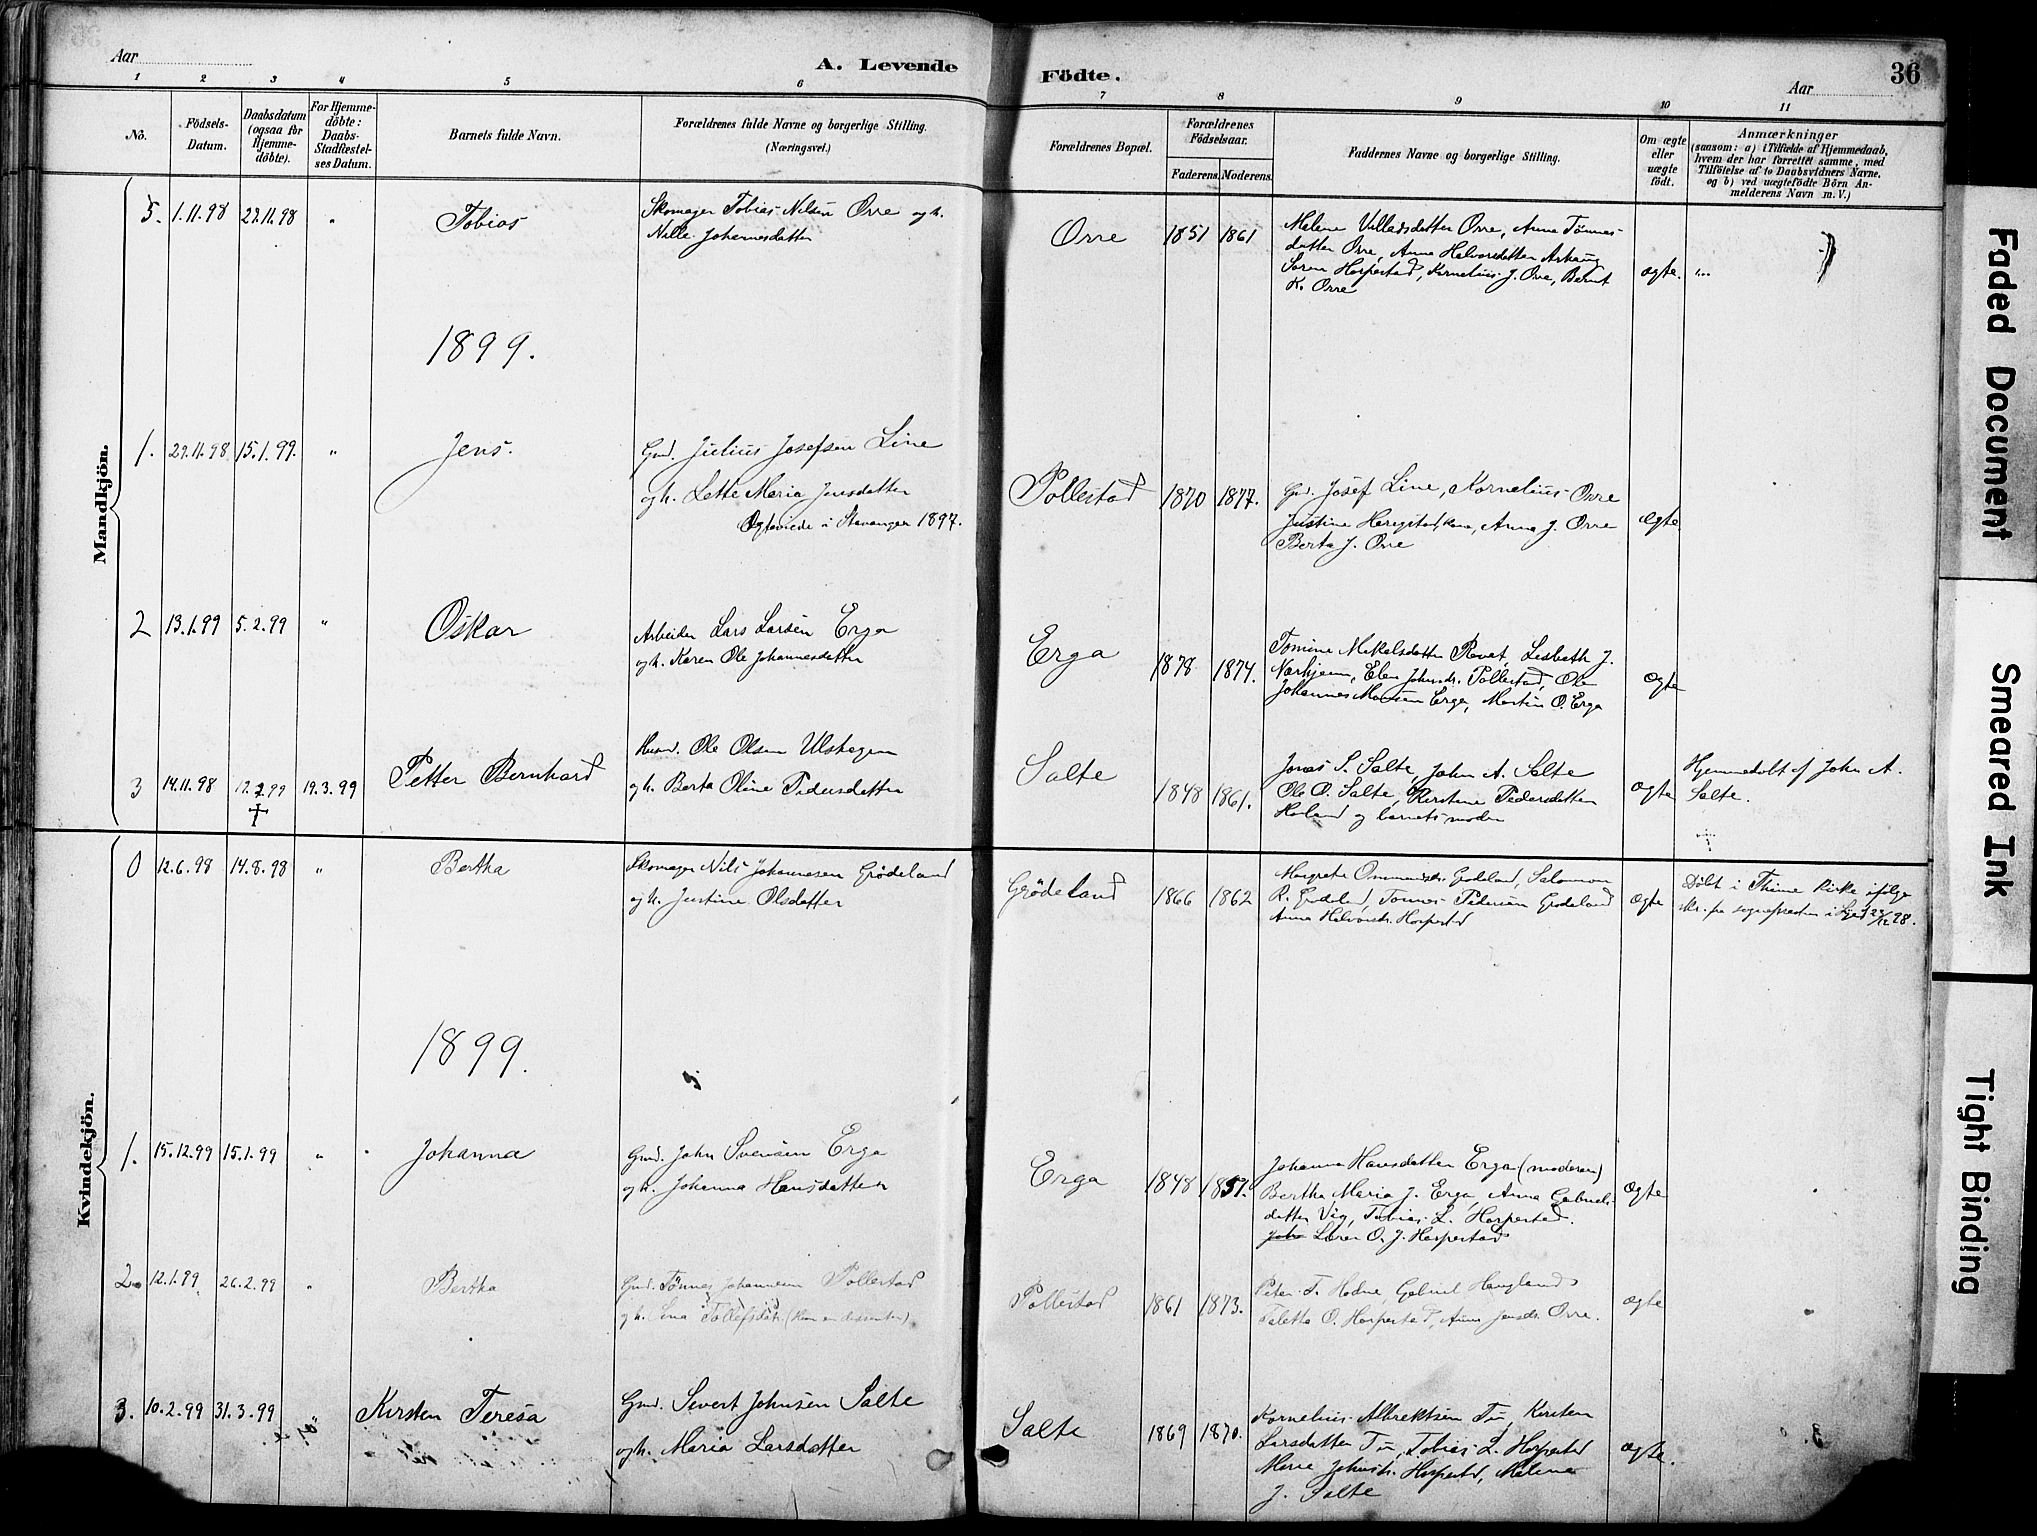 Aar
A. Levende
Födte.
Aar
36
1 2 3 4 5 6 7 8 9 10 11
No.
Födsels-
Datum.
Daabsdatum
(ogsaa for
Hjemme-
döbte).
For Hjemme-
döbte:
Daabs-
Stadfæstel-
ses Datum.
Barnets fulde Navn.
Forældrenes fulde Navne og borgerlige Stilling.
(Næringsvei.)
Forældrenes Bopæl.
Forældrenes
Födselsaar.
Faderens. Moderens.
Faddernes Navne og borgerlige Stilling.
Om ægte
eller
uægte
födt.
Anmærkninger
(saasom: a) i Tilfælde af Hjemmedaab,
hvem der har forrettet samme, med
Tilföielse af to Daabsvidners Navne,
og b) ved uægtefödte Börn An-
melderens Navn m. V.)
Mandkjön.
5. 1.11.98 27.11.98 " Tobias
Skomager Tobias Nilsen Orre og h.
Nille Johannesdatter
Orre 1851 1861
Malene Villadsdatter Orre, Anna Tönnes-
datter Orre, Anna Halvorsdatter
Sören Horpestad, Kornelius J. Orre, Bernt
K. Orre
ægte.
1899.
1. 29.11.98 15.1.99. " Jens.
Gmd. Julius Josefsen Line
og h. Lette Maria Jensdatter
Ægteviede i Stavanger 1897.
Pollestad 1870 1877.
Gmd. Josef Line, Kornelius Orre
Justine kone, Anna J. Orre
Berta J. Orre
ægte
2 13.1.99 5.2.99 " Oskar
Arbeider Lars Larsen Erga
og h. Karen Ole Johannesdatter
Erga 1878 1874.
Tomine Mikalsdatter Revet, Lisbeth J.
Nærhjem, Elen Johnsdr. Pollestad, Ole
Johannes Monsen Erga, Martin O. Erga
ægte
3 14.11.98 19.3.99 Petter Bernhard
†
Husmd. Ole Olsen Ulshagen
og h. Berta Oline Pedersdatter
Salte 1848 1861.
Jonas S. Salte, John A. Salte
Ole O. Salte, Kerstine Pedersdatter
Haaland og barnets moder
ægte
Hjemmedøbt af John A.
Salte.
†
Kvindekjön.
0 12.6.98 14.8.98 " Bertha
Skomager Nils Johannesen Grödeland
og h. Justine Olsdatter
Grödeland 1866 1862
Margrete Ommundsdr. Grödeland, Salomon
R. Grödeland, Tönnes Pedersen Grödeland
Anna Halvorsdr. Horpestad
ægte
Døbt i Thime kirke ifølge
skr. fra sognepresten i Lye 29/12 98.
1899.
1. 15.12.99 15.1.99 " Johanna
Gmd. John Svensen Erga
og h. Johanna Hansdatter
Erga 1848 1857.
Johanna Hansdatter Erga (moderen)
Bertha Maria J. Erga, Anna Gabriels-
datter Vig, Tobias L. Horpestad.
Sören O. J. Horpestad
ægte
2. 12.1.99 26.2.99 " Bertha
Gmd. Tönnes Johannesen Pollestad
og h. Lina Tollefsdatr. (hun en dissenter)
Pollestad 1861 1873.
Peter T. Hodne, Gabriel Haugland
Taletta O. Horpestad, Anna Jensdr. Orre.
ægte
3. 10.2.99 31.3.99 " Kirsten Teresa
Gmd. Sivert Johnsen Salte
og h. Maria Larsdatter
Salte 1869 1870.
Kornelius Albrektsen Tu, Kirsten
Larsdatter Tu, Tobias L. Horpestad
Marie Johnsdr. Horpestad, Malena
J. Salte
ægte.
Faded Document
Smeared Ink
Tight Binding